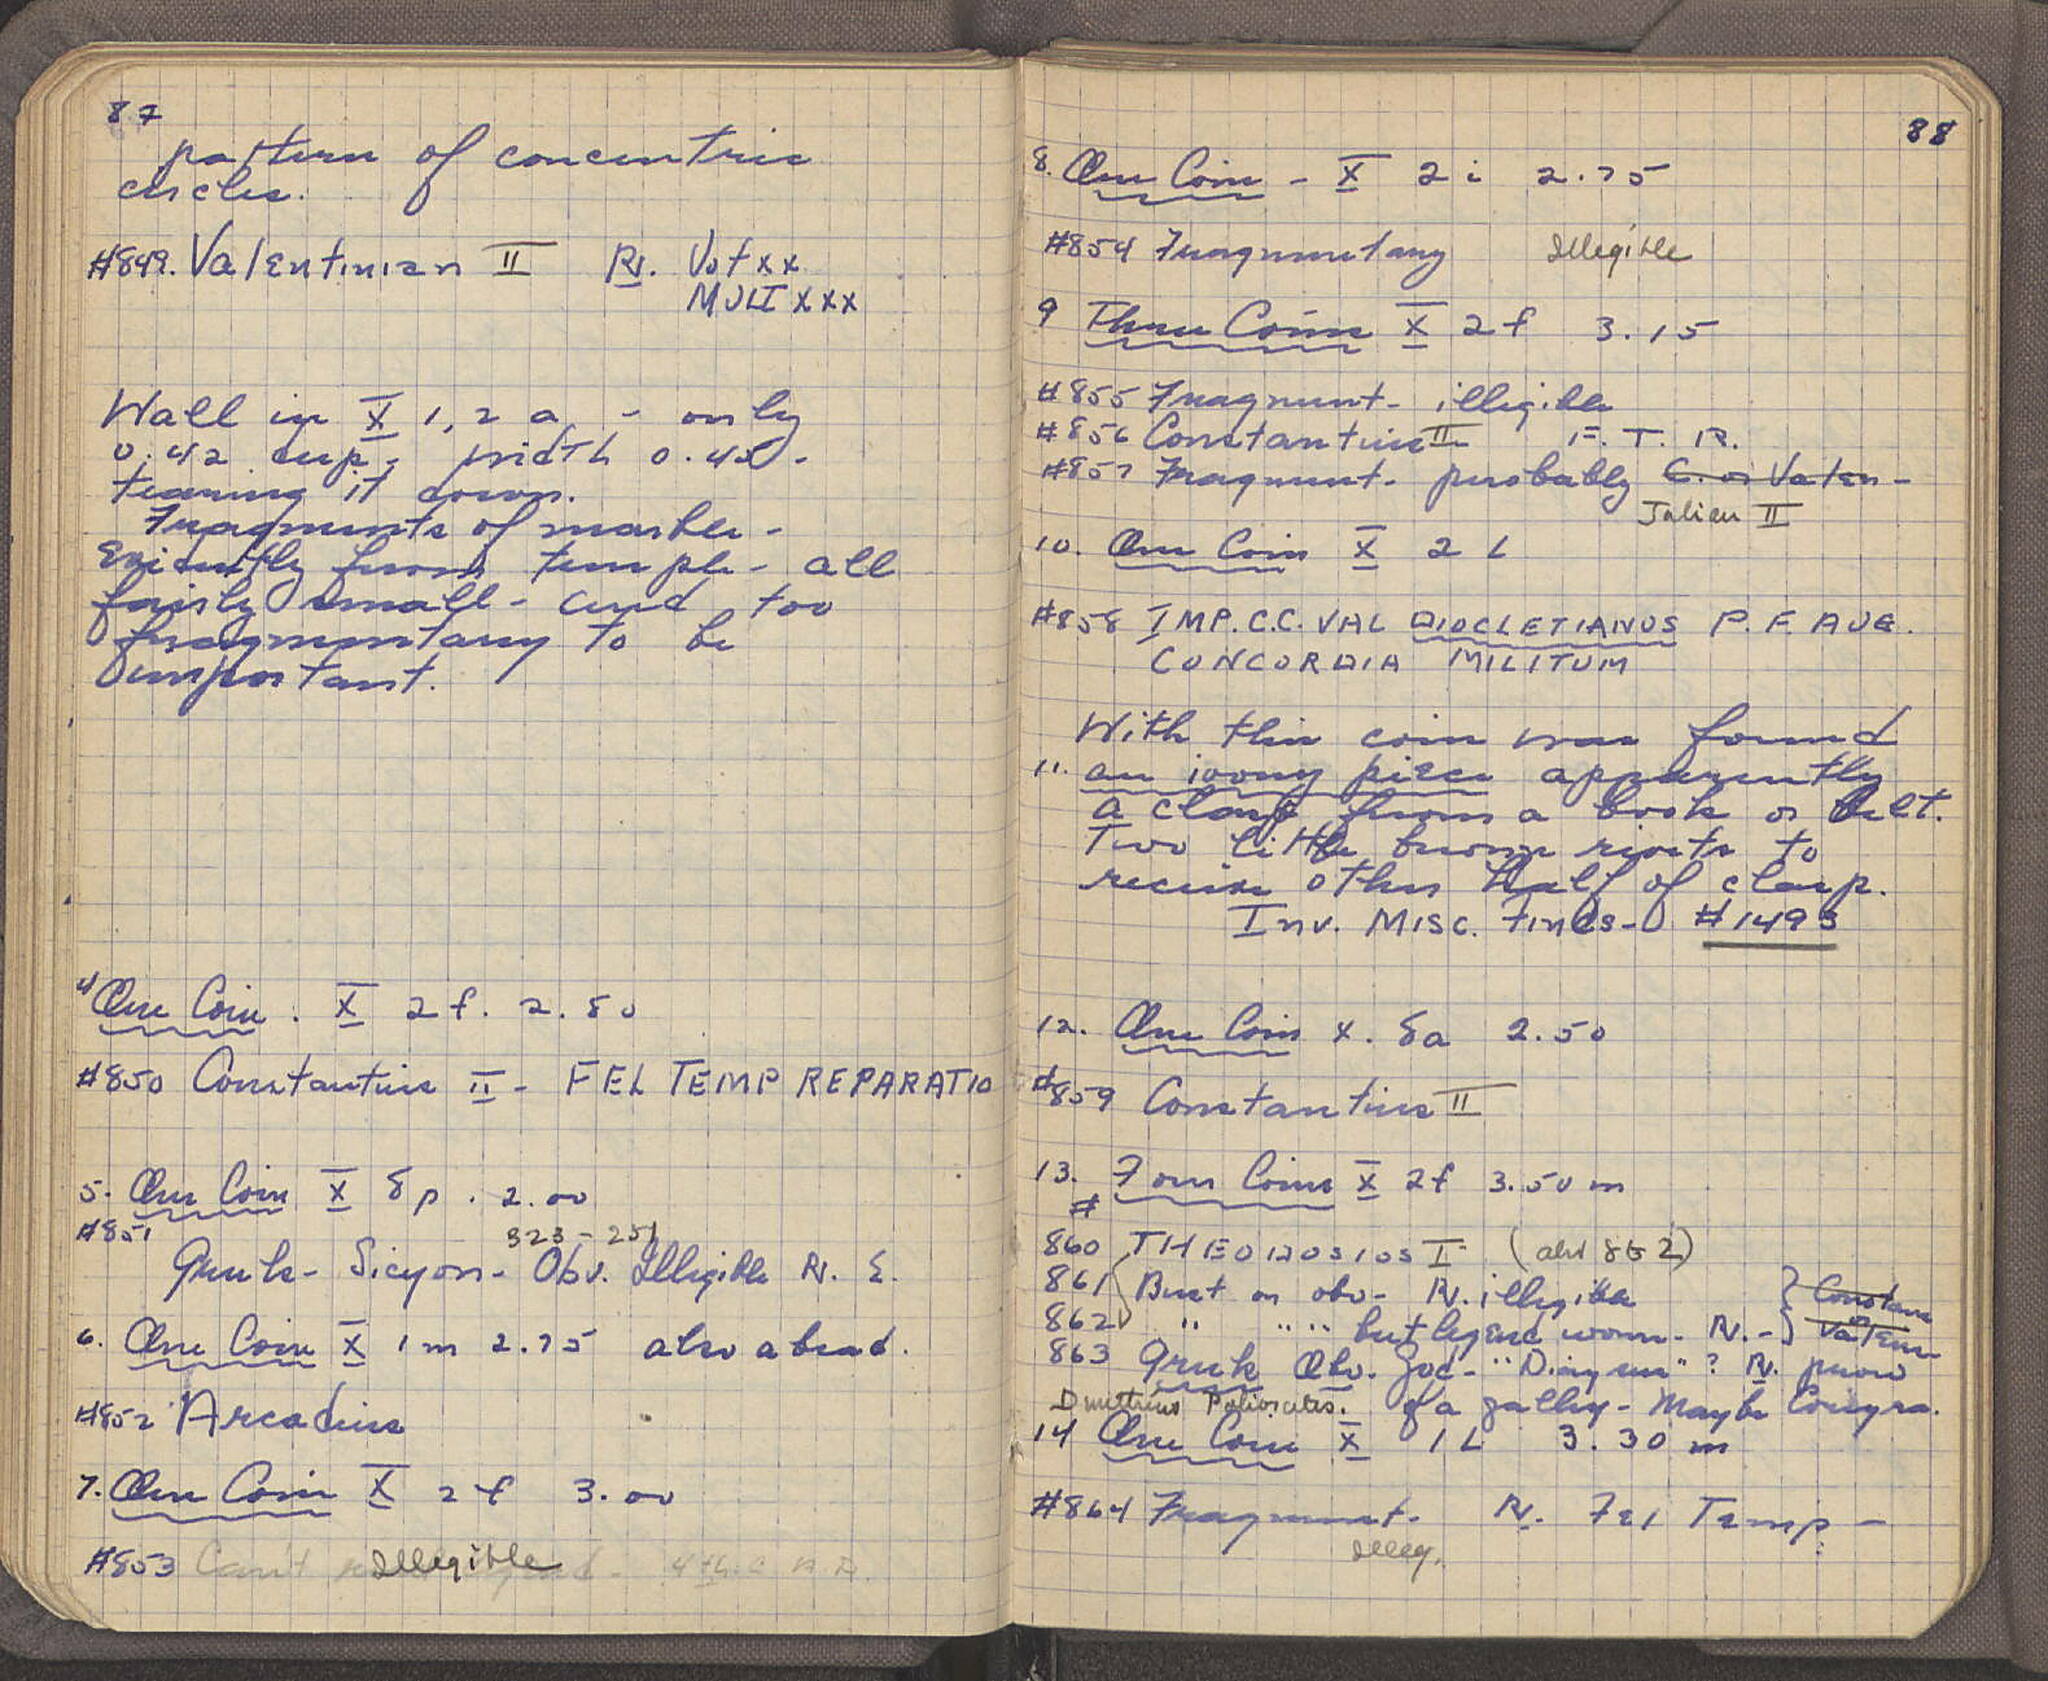 87
pattern of concentric
circles.
#849. Valentinian II Rv. Vot xx
MULT xxx
Wall in X 1, 2 a, - only
0.42 dup - width 0.45 -
tearing it down.
Fragments of marble -
Evidently from temple - all
fairly small - and too
fragmentary to be
important.
4 One Coin. X 2f. 2.80
#850 Constantius II - FEL TEMP REPARATIO
5. One Coin X 8p. 2.00
#851 323 - 251
Greek - Sicyon - Obv. Illegible Rv. Σ.
6. One Coin X 1m 2.75 also a bead.
#852 Arcadius
7. One Coin X 2f 3.00
#853 Can't Illegible 4th c A.D.
88
8. One Coin - X 2i 2.75
#854 Fragmentary Illegible
9 Three Coins X 2f 3.15
#855 Fragment - illegible
#856 Constantius II F. T. R.
#857 Fragment - probably C. or Valen -
Julian II
10. One Coin X 2L
#858 IMP. C.C. VAL DIOCLETIANUS P. F. AUG.
CONCORDIA MILITUM
With this coin was found
11. an ivory piece apparently
a clasp from a book or belt.
Two little bronze rivets to
receive other half of clasp.
Inv. Misc. Finds - #1493
12. One Coin X. 8a 2.50
#859 Constantius II
13. Four Coins X 2f 3.50 m
#
860 THEODOSIOS I (also 862)
861 Bust on obv - Rv. illegible Constans
862 " " " " but legend worn - Rv. - or Valen
863 Greek Obv. God - "Dionysus"? Rv. prow
Demetrius Poliorcetes. of a galley - Maybe Corcyra.
14 One Coin X 1L 3.30 m
#864 Fragment - Rv. Fel Temp -
illeg.